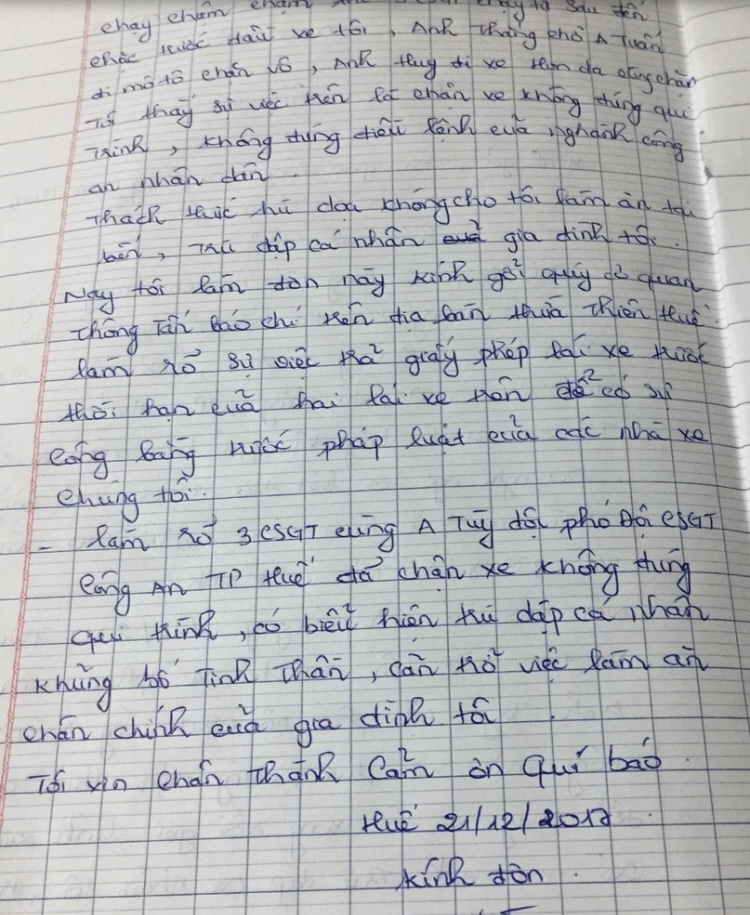 chạy chầm chậm
chốc trước đầu xe tôi, Anh Thắng chở A Tuấn
đi mô tô chặn vô, Anh Huy đi xe Hon da cũng chặn
Tôi thấy sự việc trên là chặn xe không đúng qui
Trình, không đúng điều lệnh của nghành công
an nhân dân.
Thách thức hù doạ không cho tôi làm ăn tại
bến, trù dập cá nhân gia đình tôi.
Nay tôi làm đơn này kính gởi quý cơ quan
thông Tấn báo chí trên địa bàn thừa Thiên Huế.
làm rõ sự việc trả giấy phép lái xe trước
thời hạn của hai lái xe trên để có sự
công bằng trước pháp luật của các nhà xe
chúng tôi.
- làm rõ 3 CSGT cùng A Tuý đội phó Đội CSGT
Công An TP Huế đã chặn xe không đúng
qui trình, có biểu hiện trù dập cá nhân
khủng bố Tinh Thần, cản trở việc làm ăn
chân chính của gia đình tôi
Tôi xin chân thành Cảm ơn Quí báo.
Huế 21/12/2017
Kính đơn.